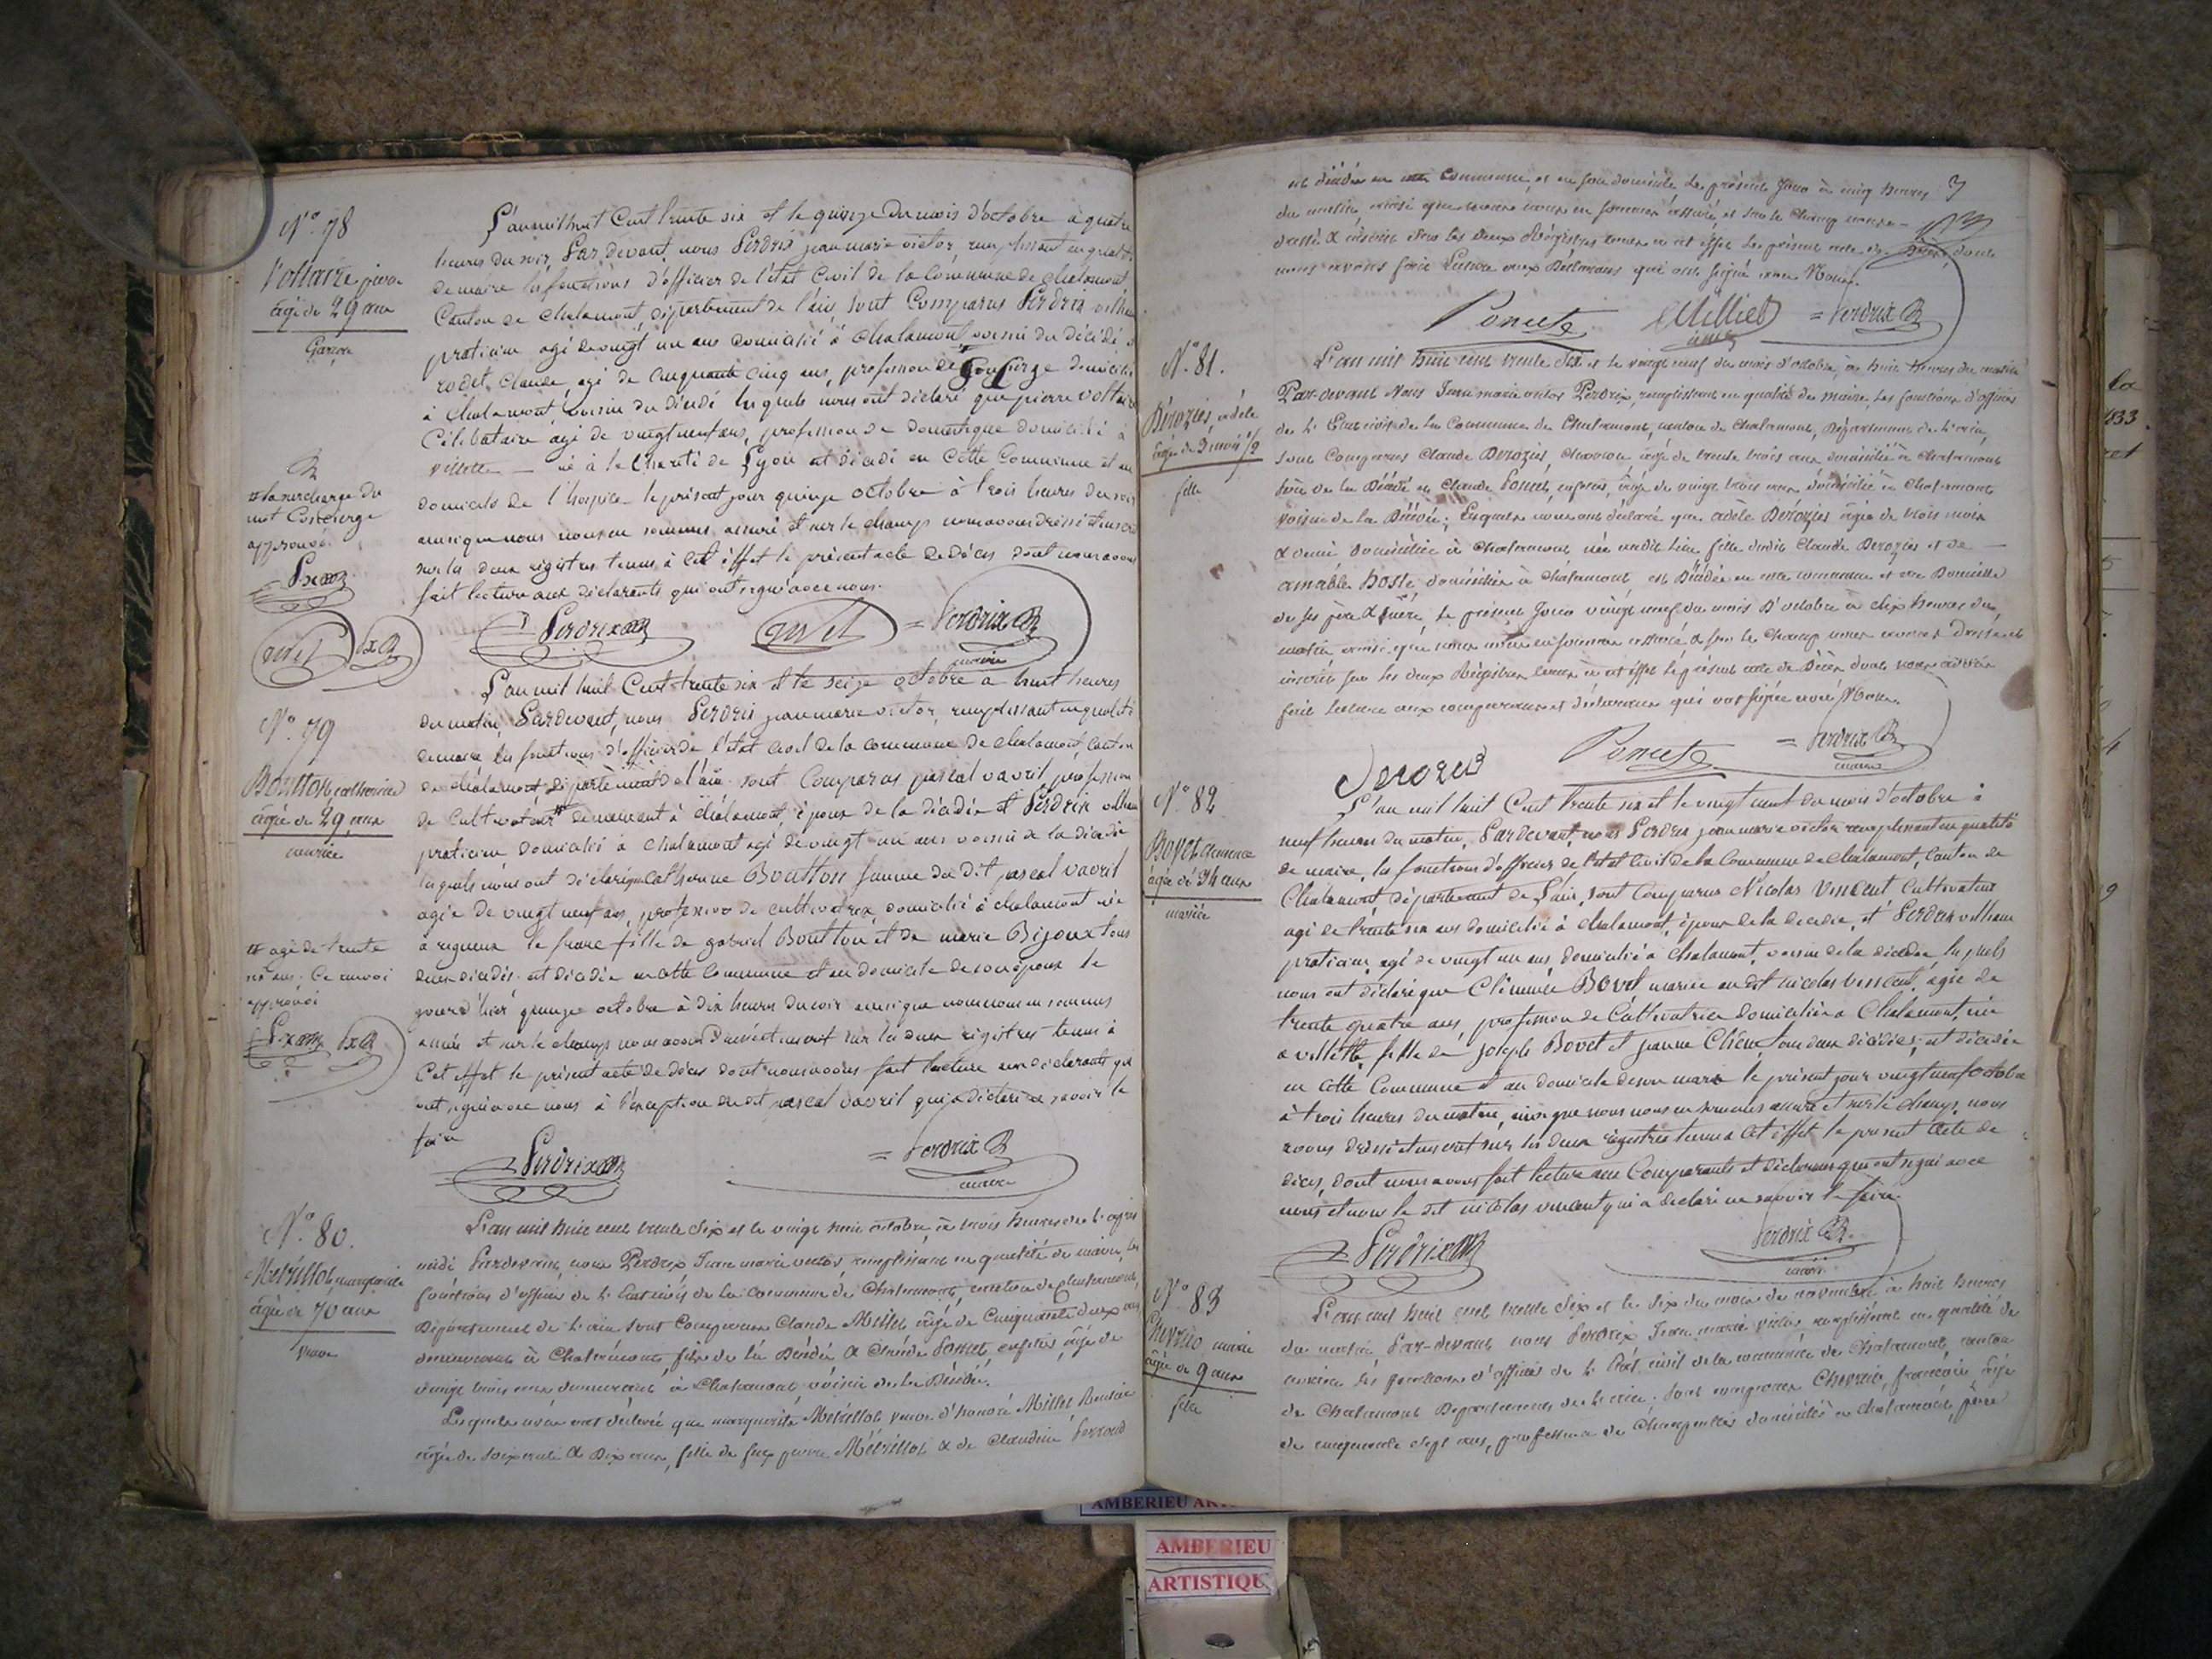 N° 78
Voltaire pierre
âgé de 29 ans
Garçon
L'an mil huit Cent trente six et le quinze du mois d'octobre à quatre
heures du soir, Par devant nous Perdrix jean marie victor, remplissant en qualité
de maire les fonctions d'officier de l'état Civil de la Commune de Chalamont
Canton de Chalamont, département de l'ain, sont Comparus Perdrix
praticien agé de vingt un ans domicilié à Chalamont, voisin du décédé
rodet Claude, agé de cinquante cinq ans, profession de Concierge domicilié
à Chalamont, voisin du décédé lesquels nous ont déclaré que pierre voltaire
Célibataire agé de vingt neuf ans, profession de domestique domicilié à
villette — né à la Charité de Lyon est décédé en cette Commune et au
domicile de l'hospice le présent jour quinze octobre à trois heures du soir
ainsi que nous nous en sommes assuré et sur le champ nous avons dressé et inscrit
sur les deux registres tenus à cet effet le présent acte de décès dont nous avons
fait lecture aux déclarants qui ont signé avec nous.
la surcharge du
mot Concierge
approuvé.
Perdrix rodet = Perdrix
maire
N° 79
Boutton catherine
âgée de 29 ans
mariée
L'an mil huit Cent trente six et le seize octobre à huit heures
du matin, Pardevant, nous Perdrix jean marie victor, remplissant en qualité
de maire les fonctions d'officier de l'état civil de la commune de chalamont, canton
de chalamont département de l'ain sont Comparus pascal vavril profession
de Cultivateur demeurant à chalamont, époux de la décédée et Perdrix
praticien domicilié à Chalamont agé de vingt un ans voisin de la décédée
lesquels nous ont déclaré que Catherine Boutton femme du dit pascal vavril
agée de vingt neuf ans, profession de cultivatrice, domiciliée à chalamont née
à rigneux le franc fille de gabriel Boutton et de marie Bijoux tous
deux décédés est décédée en cette Commune et au domicile de son époux le
jour d'hier quinze octobre à dix heures du soir ainsi que nous nous en sommes
assuré et sur le champ nous avons Dressé et inscrit sur les deux registres tenus à
Cet effet le présent acte de décès dont nous avons fait lecture aux déclarants qui
ont signé avec nous à l'exception du dit pascal vavril qui a déclaré ne savoir le
faire
agé de trente
ans. Ce renvoi
approuvé
Perdrix = Perdrix
maire
N° 80.
âgée de 70 ans
veuve
L'an mil huit cent trente six et le vingt huit octobre, à trois heures de l'après
midi Pardevant, nous Perdrix Jean marie victor remplissant en qualité de maire, les
fonctions d'officier de l'Etat civil de la commune de Chalamont, canton de Chalamont,
Département de l'ain sont Comparus Claude Millet âgé de Cinquante deux ans
demeurant à Chalamont, fils de la Décédée & Claude Poncet, âgé de
vingt trois ans demeurant à Chalamont voisin de la Décédée.
Lesquels nous ont déclaré que marguerite veuve d'honoré Millet
âgée de soixante & Dix ans, fille de feu pierre & de Claudine Perraud
est décédée en cette Commune, et en son domicile le présent Jour à cinq heures
du matin, ainsi que nous nous en sommes assuré, et sur le Champ nous avons
dressé & inscrit sur les Deux Régistres tenus à cet effet le présent acte de Décès, dont
nous avons fait Lecture aux Déclarans qui ont signé avec Nous.
Poncet Milliet = Perdrix
maire
N° 81.
Dérozier, adèle
âgée de 3 mois 1/2
fille
L'an mil huit cent trente Six et le vingt neuf du mois d'octobre, à huit heures du matin
Par-devant Nous Jean marie victor Perdrix, remplissant en qualité de maire, les fonctions d'officier
de l'Etat civil de la Commune de Chalamont, canton de Chalamont, Département de l'ain,
sont Comparus Claude Derozier, âgé de trente trois ans domicilié à Chalamont
père de la Décédée et Claude Poncet, âgé de vingt trois ans domicilié à Chalamont
voisin de la Décédée; Lesquels nous ont déclaré que adèle Derozier âgée de trois mois
& demi domiciliée à Chalamont née audit lieu fille dudit Claude Derozier et de —
amable hoste domiciliés à Chalamont est Décédée en cette commune et au Domicile
de ses père & mère, le présent Jour vingt neuf du mois d'octobre à six heures du
matin ainsi que nous nous en sommes assuré & sur le champ nous avons Dressé et
inscrit sur les deux Régistres tenus à cet effet le présent acte de Décès dont nous avons
fait Lecture aux comparans et déclarans qui ont signé avec Nous.
Derozier Poncet = Perdrix
maire
N° 82
Bovet clémence
âgée de 34 ans
mariée
L'an mil huit Cent trente six et le vingt neuf du mois d'octobre à
neuf heures du matin, Pardevant, nous Perdrix jean marie victor remplissant en qualité
de maire, les fonctions d'officier de l'état Civil de la Commune de Chalamont, Canton de
Chalamont département de l'ain, sont Comparus Nicolas Vincent, Cultivateur
agé de trente six ans domicilié à Chalamont, époux de la décédée, et Perdrix
praticien, agé de vingt un ans, domicilié à Chalamont, voisin de la décédée lesquels
nous ont déclaré que Clémence Bovet mariée au dit nicolas vincent, agée de
trente quatre ans, profession de Cultivatrice domiciliée à Chalamont, née
à villette fille de joseph Bovet et jeanne Chêne tous deux décédés, est décédée
en Cette Commune et au domicile de son mari le présent jour vingt neuf octobre
à trois heures du matin, ainsi que nous nous en sommes assuré et sur le champ, nous
avons dressé et inscrit sur les deux registres tenus à Cet effet le présent acte de
décès, dont nous avons fait lecture aux Comparants et déclarans qui ont signé avec
nous et non le dit nicolas vincent qui a déclaré ne savoir le faire.
Perdrix Perdrix
maire
N° 83
marie
âgée de 9 ans
fille
L'an mil huit cent trente Six et le Six du mois de novembre à huit heures
du matin, Par-devant nous Perdrix Jean marie victor remplissant en qualité de
maire les fonctions d'officier de l'Etat civil de la commune de Chalamont, canton
de Chalamont Département de l'ain; sont comparus françois âgé
de cinquante sept ans, profession de Charpentier domicilié à Chalamont, père
la
1833
AMBERIEU
AMBERIEU
ARTISTIQUE